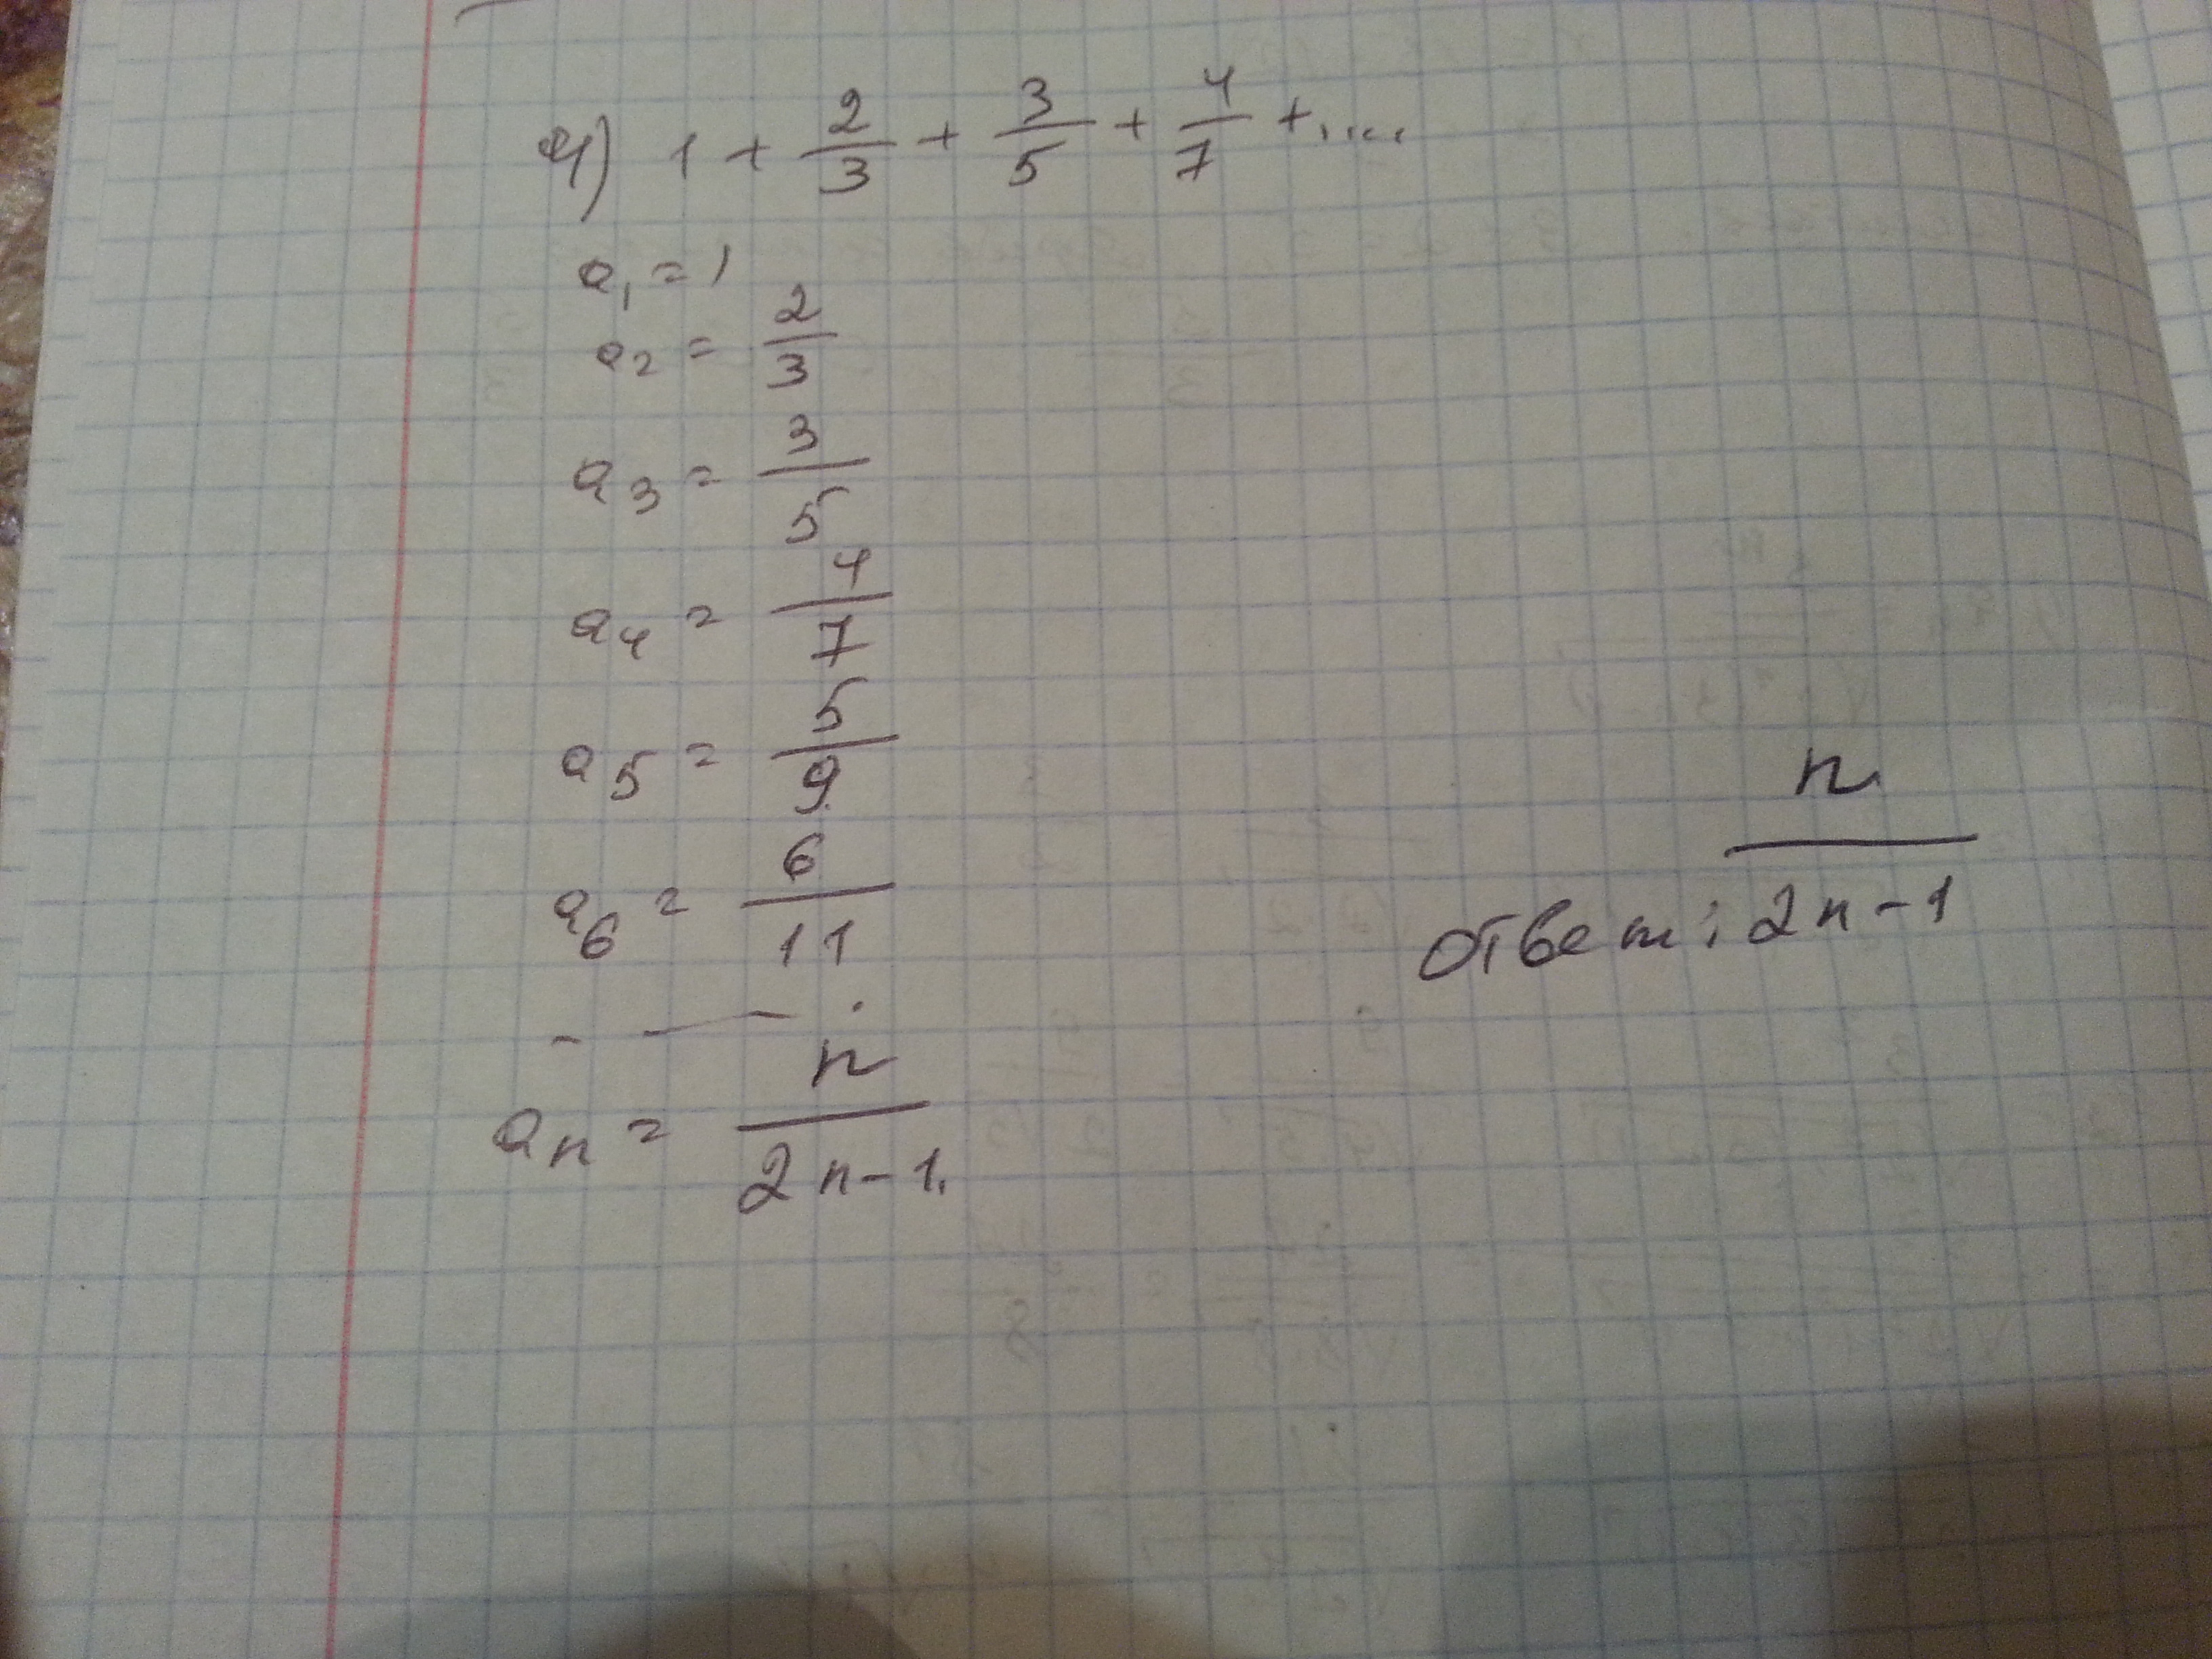 4) 1 + 2/3 + 3/5 + 4/7 + ....
a₁ = 1
a₂ = 2/3
a₃ = 3/5
a₄ = 4/7
a₅ = 5/9
a₆ = 6/11
aₙ = n/(2n-1).
Ответ: n/(2n-1)